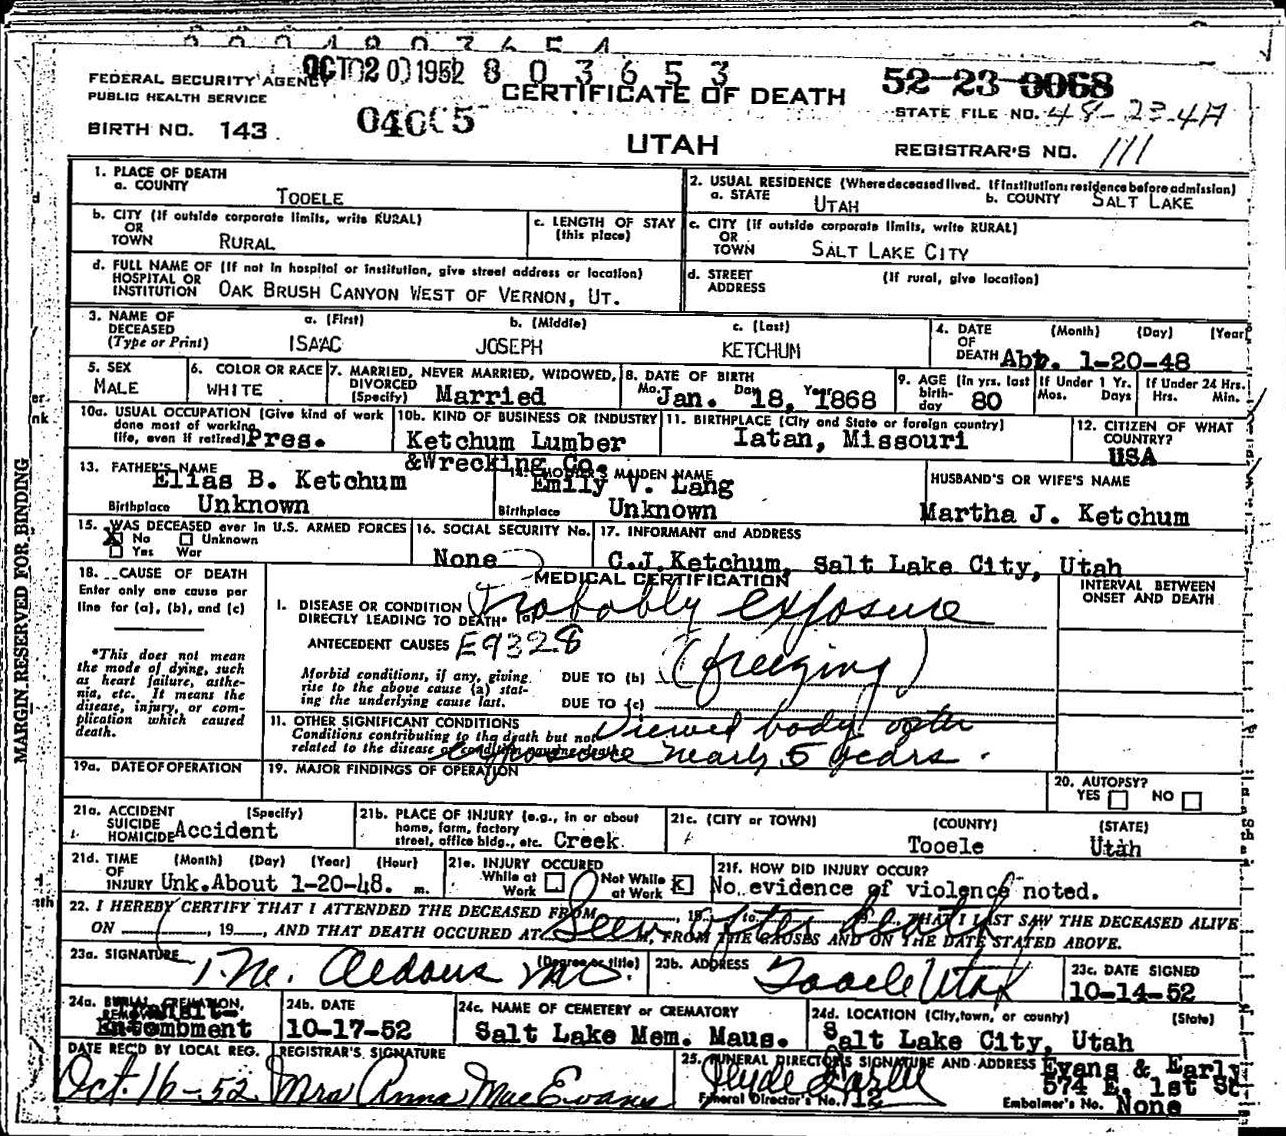 OCT 20 1952 8 0 3 6 5 3
52-23-0068
FEDERAL SECURITY AGENCY
PUBLIC HEALTH SERVICE
CERTIFICATE OF DEATH
STATE FILE NO. 48-23-4A
BIRTH NO. 143
UTAH
REGISTRAR'S NO. 111
1. PLACE OF DEATH
a. COUNTY
TOOELE
2. USUAL RESIDENCE (Where deceased lived. If institution: residence before admission)
a. STATE UTAH b. COUNTY SALT LAKE
b. CITY (If outside corporate limits, write RURAL)
OR
TOWN RURAL
c. LENGTH OF STAY
(this place)
c. CITY (If outside corporate limits, write RURAL)
OR
TOWN SALT LAKE CITY
d. FULL NAME OF (If not in hospital or institution, give street address or location)
HOSPITAL OR
INSTITUTION OAK BRUSH CANYON WEST OF VERNON, UT.
d. STREET (If rural, give location)
ADDRESS
3. NAME OF
DECEASED
(Type or Print)
a. (First) b. (Middle) c. (Last)
ISAAC JOSEPH KETCHUM
4. DATE (Month) (Day) (Year)
OF
DEATH Abt. 1-20-48
5. SEX
MALE
6. COLOR OR RACE
WHITE
7. MARRIED, NEVER MARRIED, WIDOWED,
DIVORCED
(Specify) Married
8. DATE OF BIRTH
Mo. Jan. Day 18, Year 1868
9. AGE (In yrs. last
birth-
day 80
If Under 1 Yr.
Mos. Days
If Under 24 Hrs.
Hrs. Min.
10a. USUAL OCCUPATION (Give kind of work
done most of working
life, even if retired) Pres.
10b. KIND OF BUSINESS OR INDUSTRY
Ketchum Lumber
& Wrecking Co.
11. BIRTHPLACE (City and State or foreign country)
Iatan, Missouri
12. CITIZEN OF WHAT
COUNTRY?
USA
13. FATHER'S NAME
Elias B. Ketchum
Birthplace Unknown
14. MOTHER'S MAIDEN NAME
Emily V. Lang
Birthplace Unknown
HUSBAND'S OR WIFE'S NAME
Martha J. Ketchum
15. WAS DECEASED ever in U.S. ARMED FORCES
X No Unknown
Yes War
16. SOCIAL SECURITY No.
None
17. INFORMANT and ADDRESS
C.J. Ketchum, Salt Lake City, Utah
18. CAUSE OF DEATH
Enter only one cause per
line for (a), (b), and (c)
*This does not mean
the mode of dying, such
as heart failure, asthe-
nia, etc. It means the
disease, injury, or com-
plication which caused
death.
MEDICAL CERTIFICATION
INTERVAL BETWEEN
ONSET AND DEATH
I. DISEASE OR CONDITION
DIRECTLY LEADING TO DEATH* (a) Probably exposure
ANTECEDENT CAUSES E9328
(freezing)
Morbid conditions, if any, giving
rise to the above cause (a) stat-
ing the underlying cause last.
DUE TO (b)
DUE TO (c)
11. OTHER SIGNIFICANT CONDITIONS
Conditions contributing to the death but not
related to the disease or condition causing death.
Viewed body after
exposure nearly 5 years.
19a. DATE OF OPERATION
19. MAJOR FINDINGS OF OPERATION
20. AUTOPSY?
YES NO
21a. ACCIDENT (Specify)
SUICIDE
HOMICIDE Accident
21b. PLACE OF INJURY (e.g., in or about
home, farm, factory
street, office bldg., etc. Creek
21c. (CITY or TOWN) (COUNTY) (STATE)
Tooele Utah
21d. TIME (Month) (Day) (Year) (Hour)
OF
INJURY Unk. About 1-20-48. m.
21e. INJURY OCCURED
While at Work Not While at Work X
21f. HOW DID INJURY OCCUR?
No evidence of violence noted.
22. I HEREBY CERTIFY THAT I ATTENDED THE DECEASED FROM , 19 , to , 19 , THAT I LAST SAW THE DECEASED ALIVE
ON , 19 , AND THAT DEATH OCCURED AT M, FROM THE CAUSES AND ON THE DATE STATED ABOVE.
Seen after death
23a. SIGNATURE (Degree or title)
T.M. Aldous MD.
23b. ADDRESS
Tooele Utah
23c. DATE SIGNED
10-14-52
24a. BURIAL, CREMATION,
REMOVAL
Entombment
24b. DATE
10-17-52
24c. NAME OF CEMETERY or CREMATORY
Salt Lake Mem. Maus.
24d. LOCATION (City, town, or county) (State)
Salt Lake City, Utah
DATE REC'D BY LOCAL REG.
Oct. 16-52
REGISTRAR'S SIGNATURE
Mrs Anna MacEvans
25. FUNERAL DIRECTOR'S SIGNATURE AND ADDRESS Evans & Early
574 E. 1st St
Funeral Director's No. 12
Embalmer's No. None
MARGIN RESERVED FOR BINDING